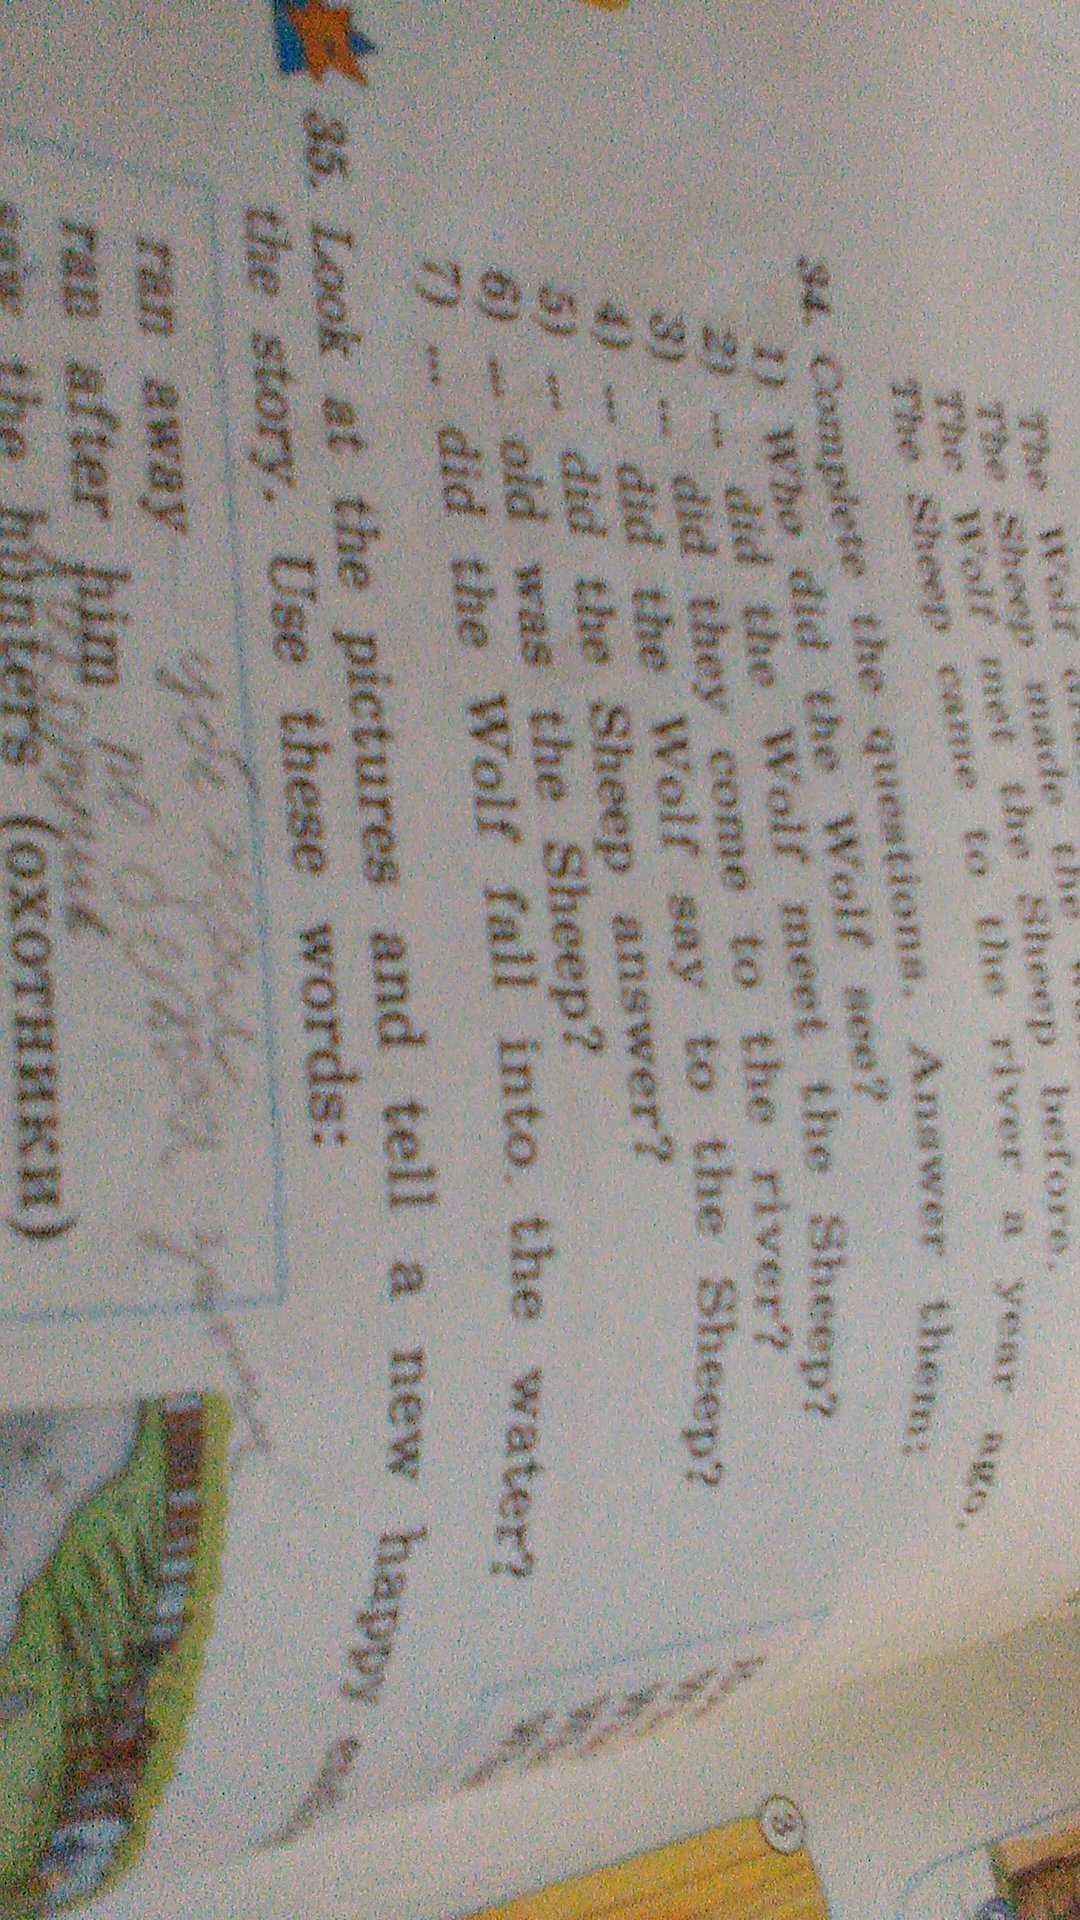 The Wolf
The Sheep made the
The Wolf met the Sheep before.
The Sheep came to the river a year ago.
34. Complete the questions. Answer them:
1) Who did the Wolf see?
2) ... did the Wolf meet the Sheep?
3) ... did they come to the river?
4) ... did the Wolf say to the Sheep?
5) ... did the Sheep answer?
6) ... old was the Sheep?
7) ... did the Wolf fall into the water?
35. Look at the pictures and tell a new happy
the story. Use these words:
ran away
ran after him
the hunters (охотники)
3